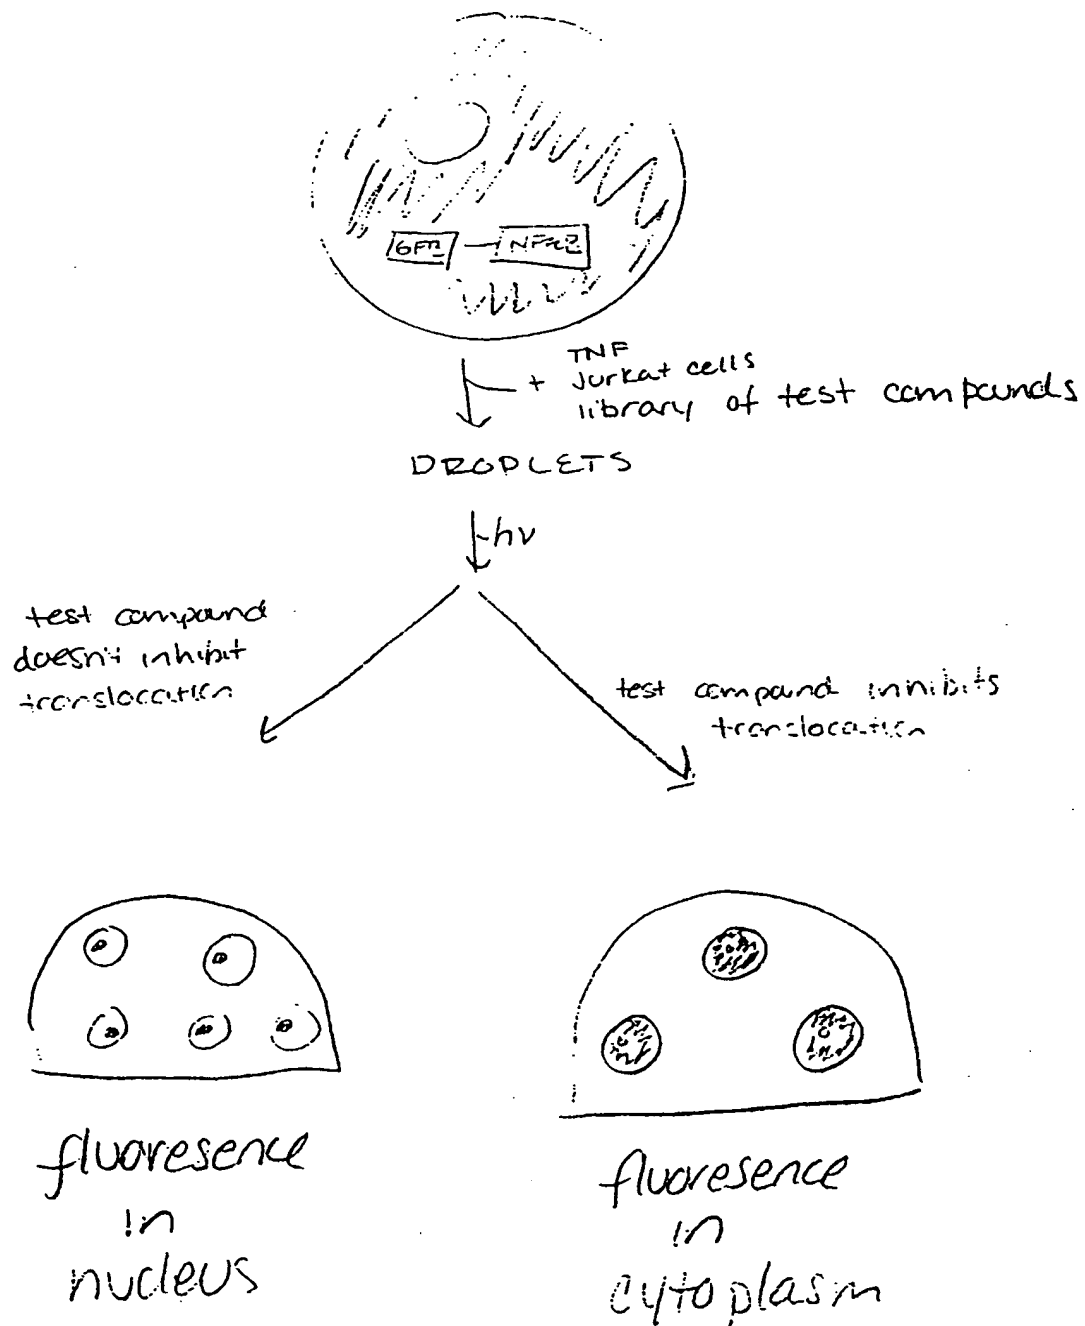 GFP
TNF
+ Jurkat cells
library of test compounds
DROPLETS
hν
test compound
doesn't inhibit
translocation
test compound inhibits
translocation
fluoresence
in
nucleus
fluoresence
in
cytoplasm